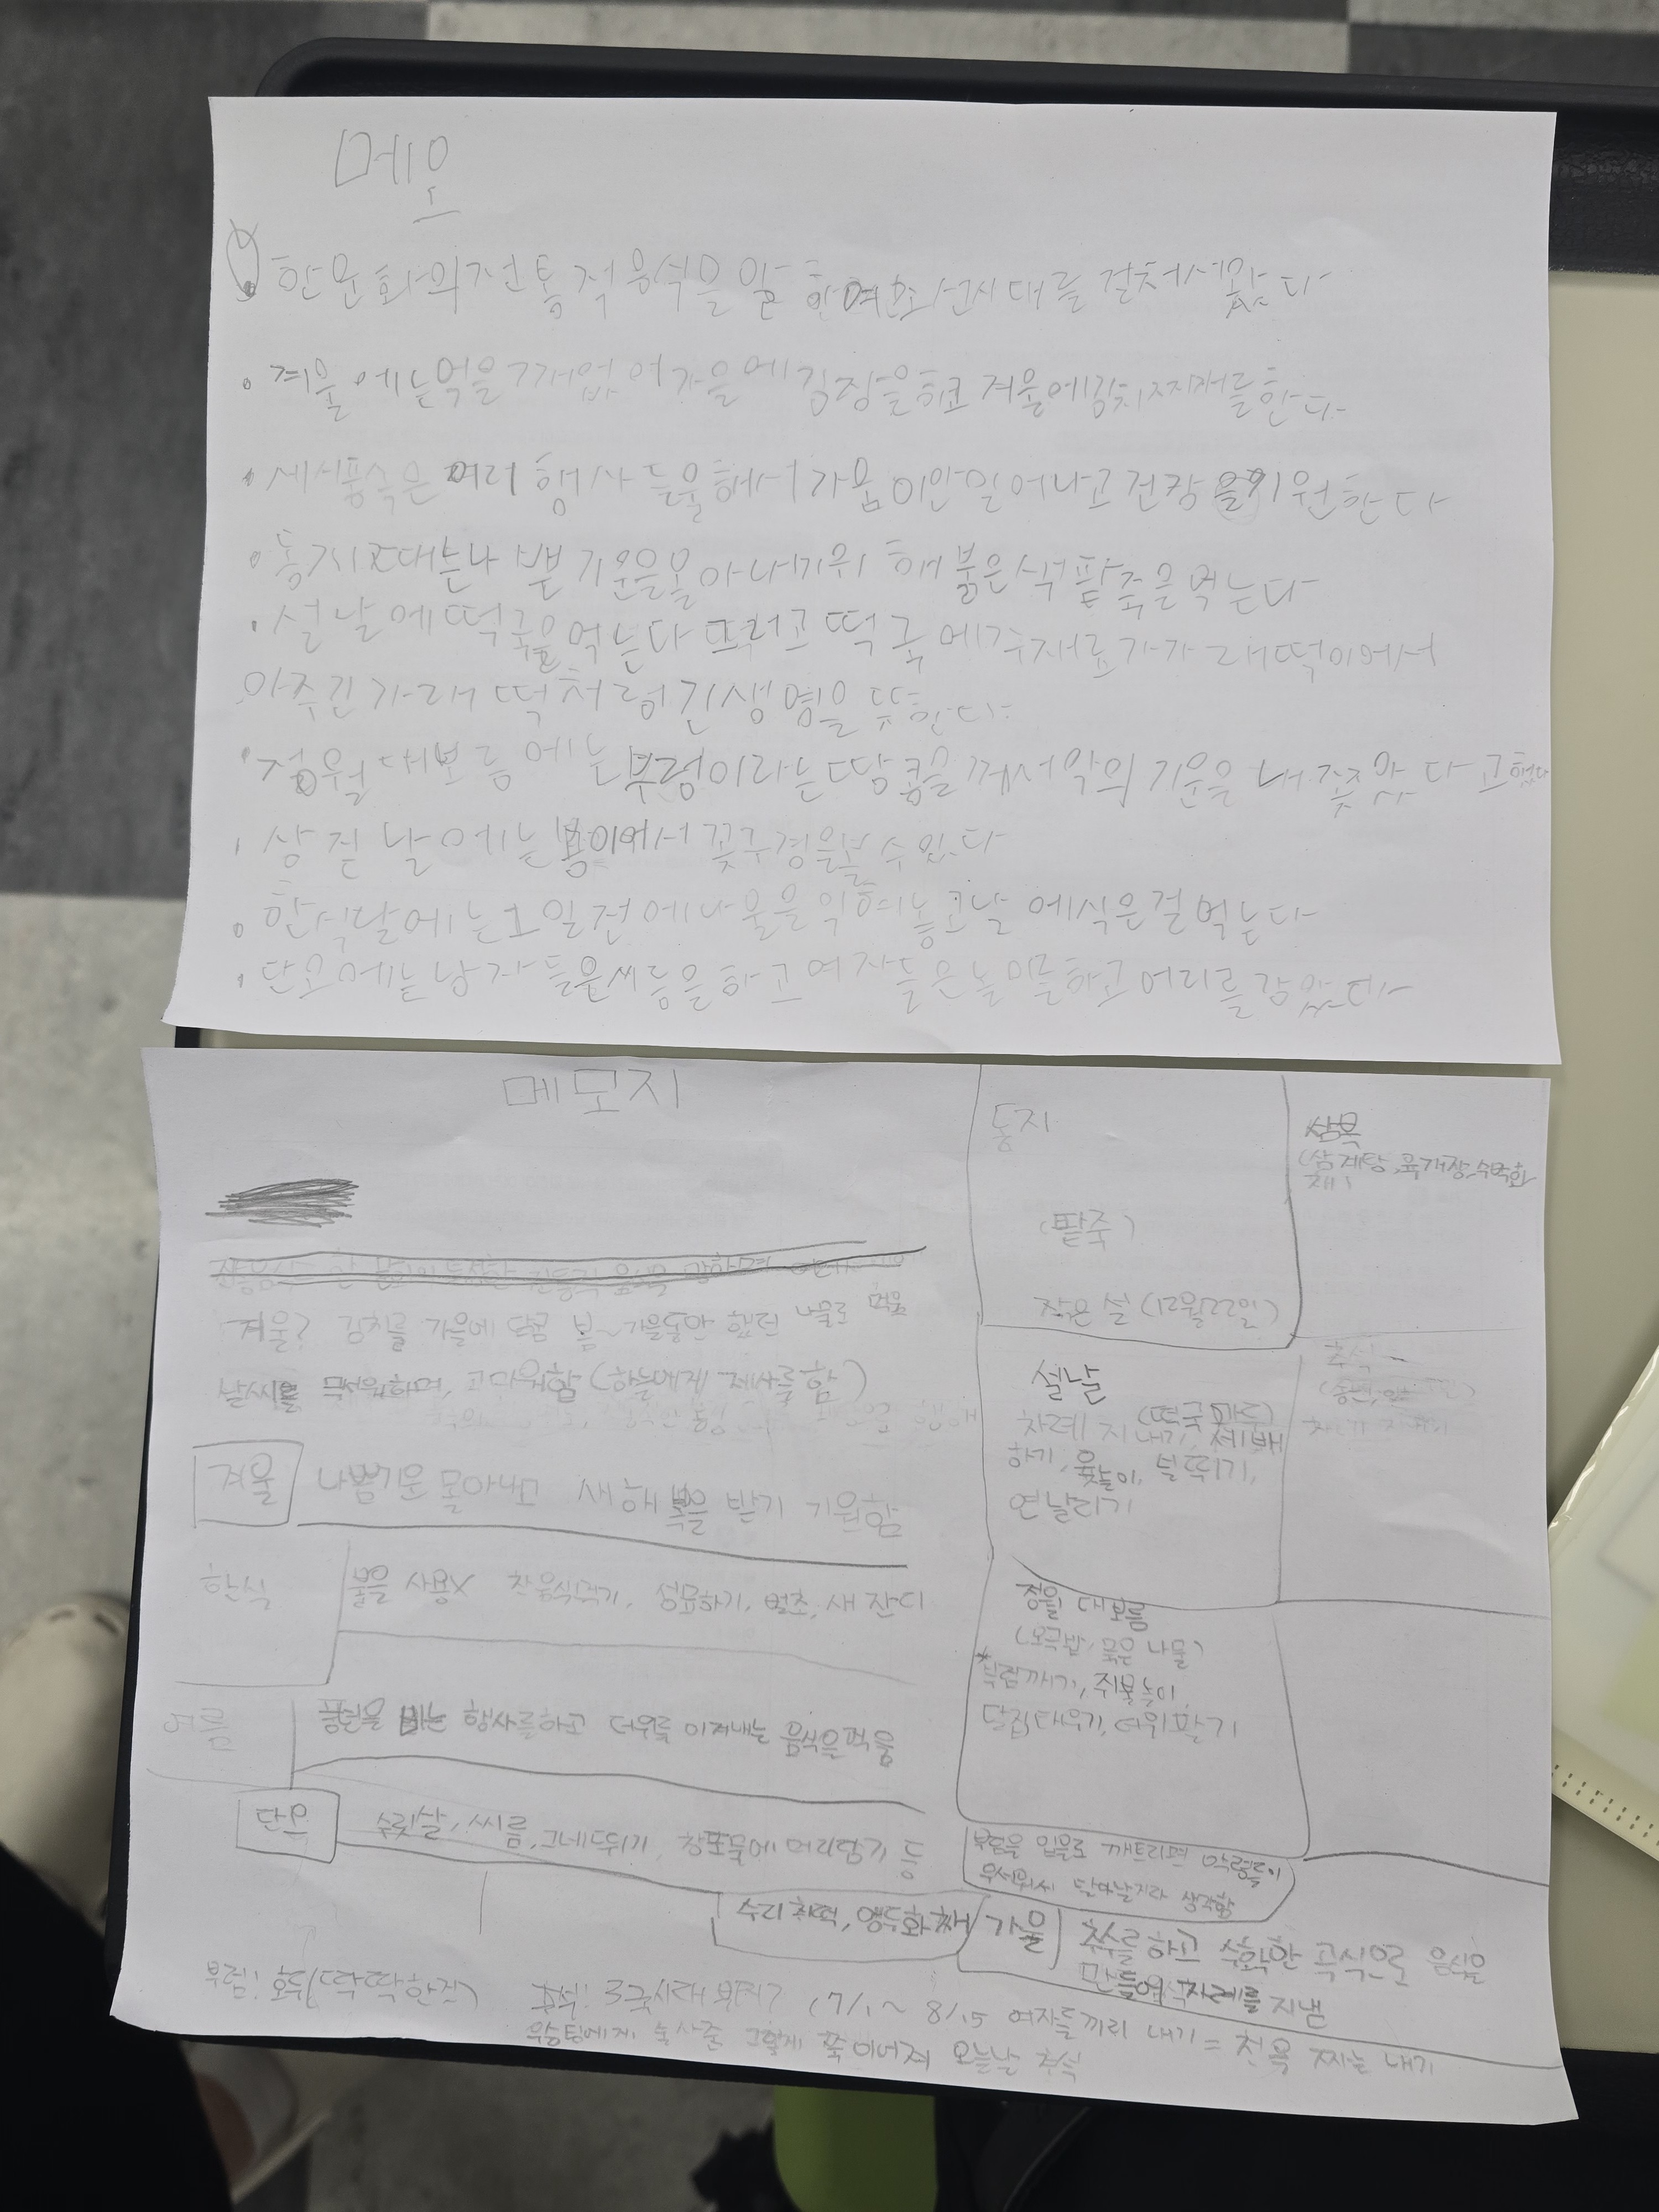 메모
한문화의전통적음식을 알 조선시대를 걸처서왔다
겨울에는먹을게없어가을에김장을하고 겨울에김치찌개를한다
세시풍속은 여러 행사들을해서가뭄이안일어나고건강을기원한다
동지때는나쁜기운을몰아내기위해붉은색팥죽을먹는다
설날에떡국을먹는다 그리고 떡국에주재료가가래떡이어서
아주긴가래떡처럼긴생명을뜻한다
정월대보름에는부럼이라는땅콩을깨서악의기운을내쫓았다고했다
삼짇날에는봄이여서꽃구경을볼수있다
한식날에는1일전에나물을익혀놓고날에식은걸먹는다
단오에는남자들은씨름을하고여자들은놀이를하고머리를감았다
메모지
겨울? 김치를 가을에 담굼 봄~가을동안 했던 나물로 먹음
날씨를 무서워하며, 고마워함 (하늘에게 제사를함)
겨울 나쁜기운 몰아내고 새해 복을 받기 기원함
한식 불을 사용X 찬음식먹기, 성묘하기, 벌초, 새 잔디
여름 풍년을 비는 행사를하고 더위를 이겨내는 음식을먹음
단오 수릿날, 씨름, 그네뛰기, 창포물에 머리감기 등
수리취떡, 앵두화채
부럼: 호두(딱딱한것)
동지
(팥죽)
작은 설 (12월22일)
삼복
(삼계탕, 육개장, 수박화
채)
설날
(떡국 만두)
차례 지내기, 세배
하기, 윷놀이, 널뛰기,
연날리기
추석
정월 대보름
(오곡밥, 묵은 나물)
부럼깨기, 쥐불놀이,
달집태우기, 더위팔기
부럼을 입으로 깨트리면 악령들이
무서워서 달아날거라 생각함
가을 추수를 하고 수확한 곡식으로 음식을
만들어 차례를 지냄
추석: 3국시대 부터? (7/1~8/15 여자들끼리 내기=천을 짜는 내기
우승팀에게 술 사준 그렇게 쭉 이어져 오늘날 추석